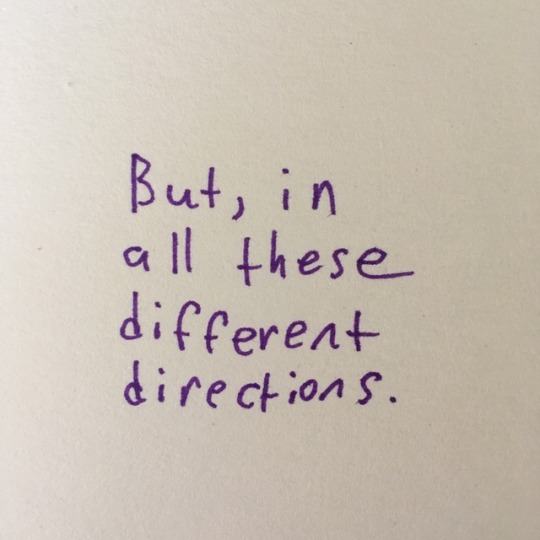 But, in
all these
different
directions.